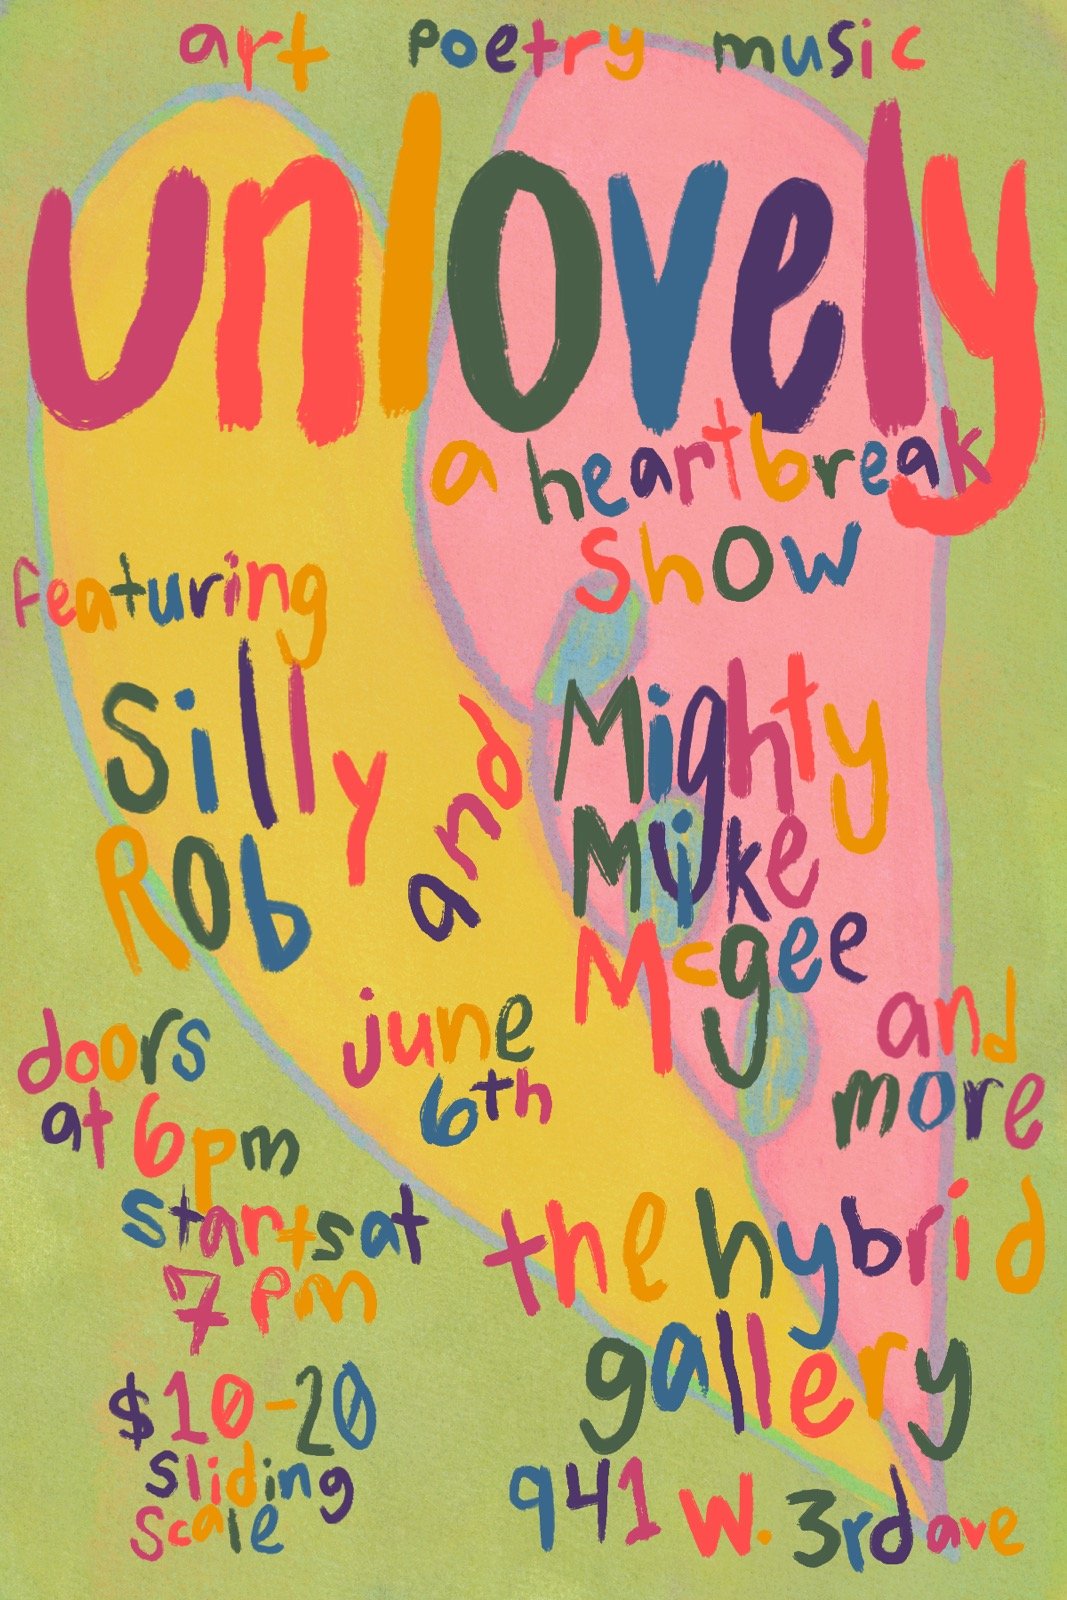 art poetry music
unlovely
a heartbreak
show
featuring
Silly
Rob
and
Mighty
Mike
Mcgee
and
more
doors
at 6pm
starts at
7 pm
june
6th
$10-20
sliding
scale
the hybrid
gallery
941 W. 3rd ave